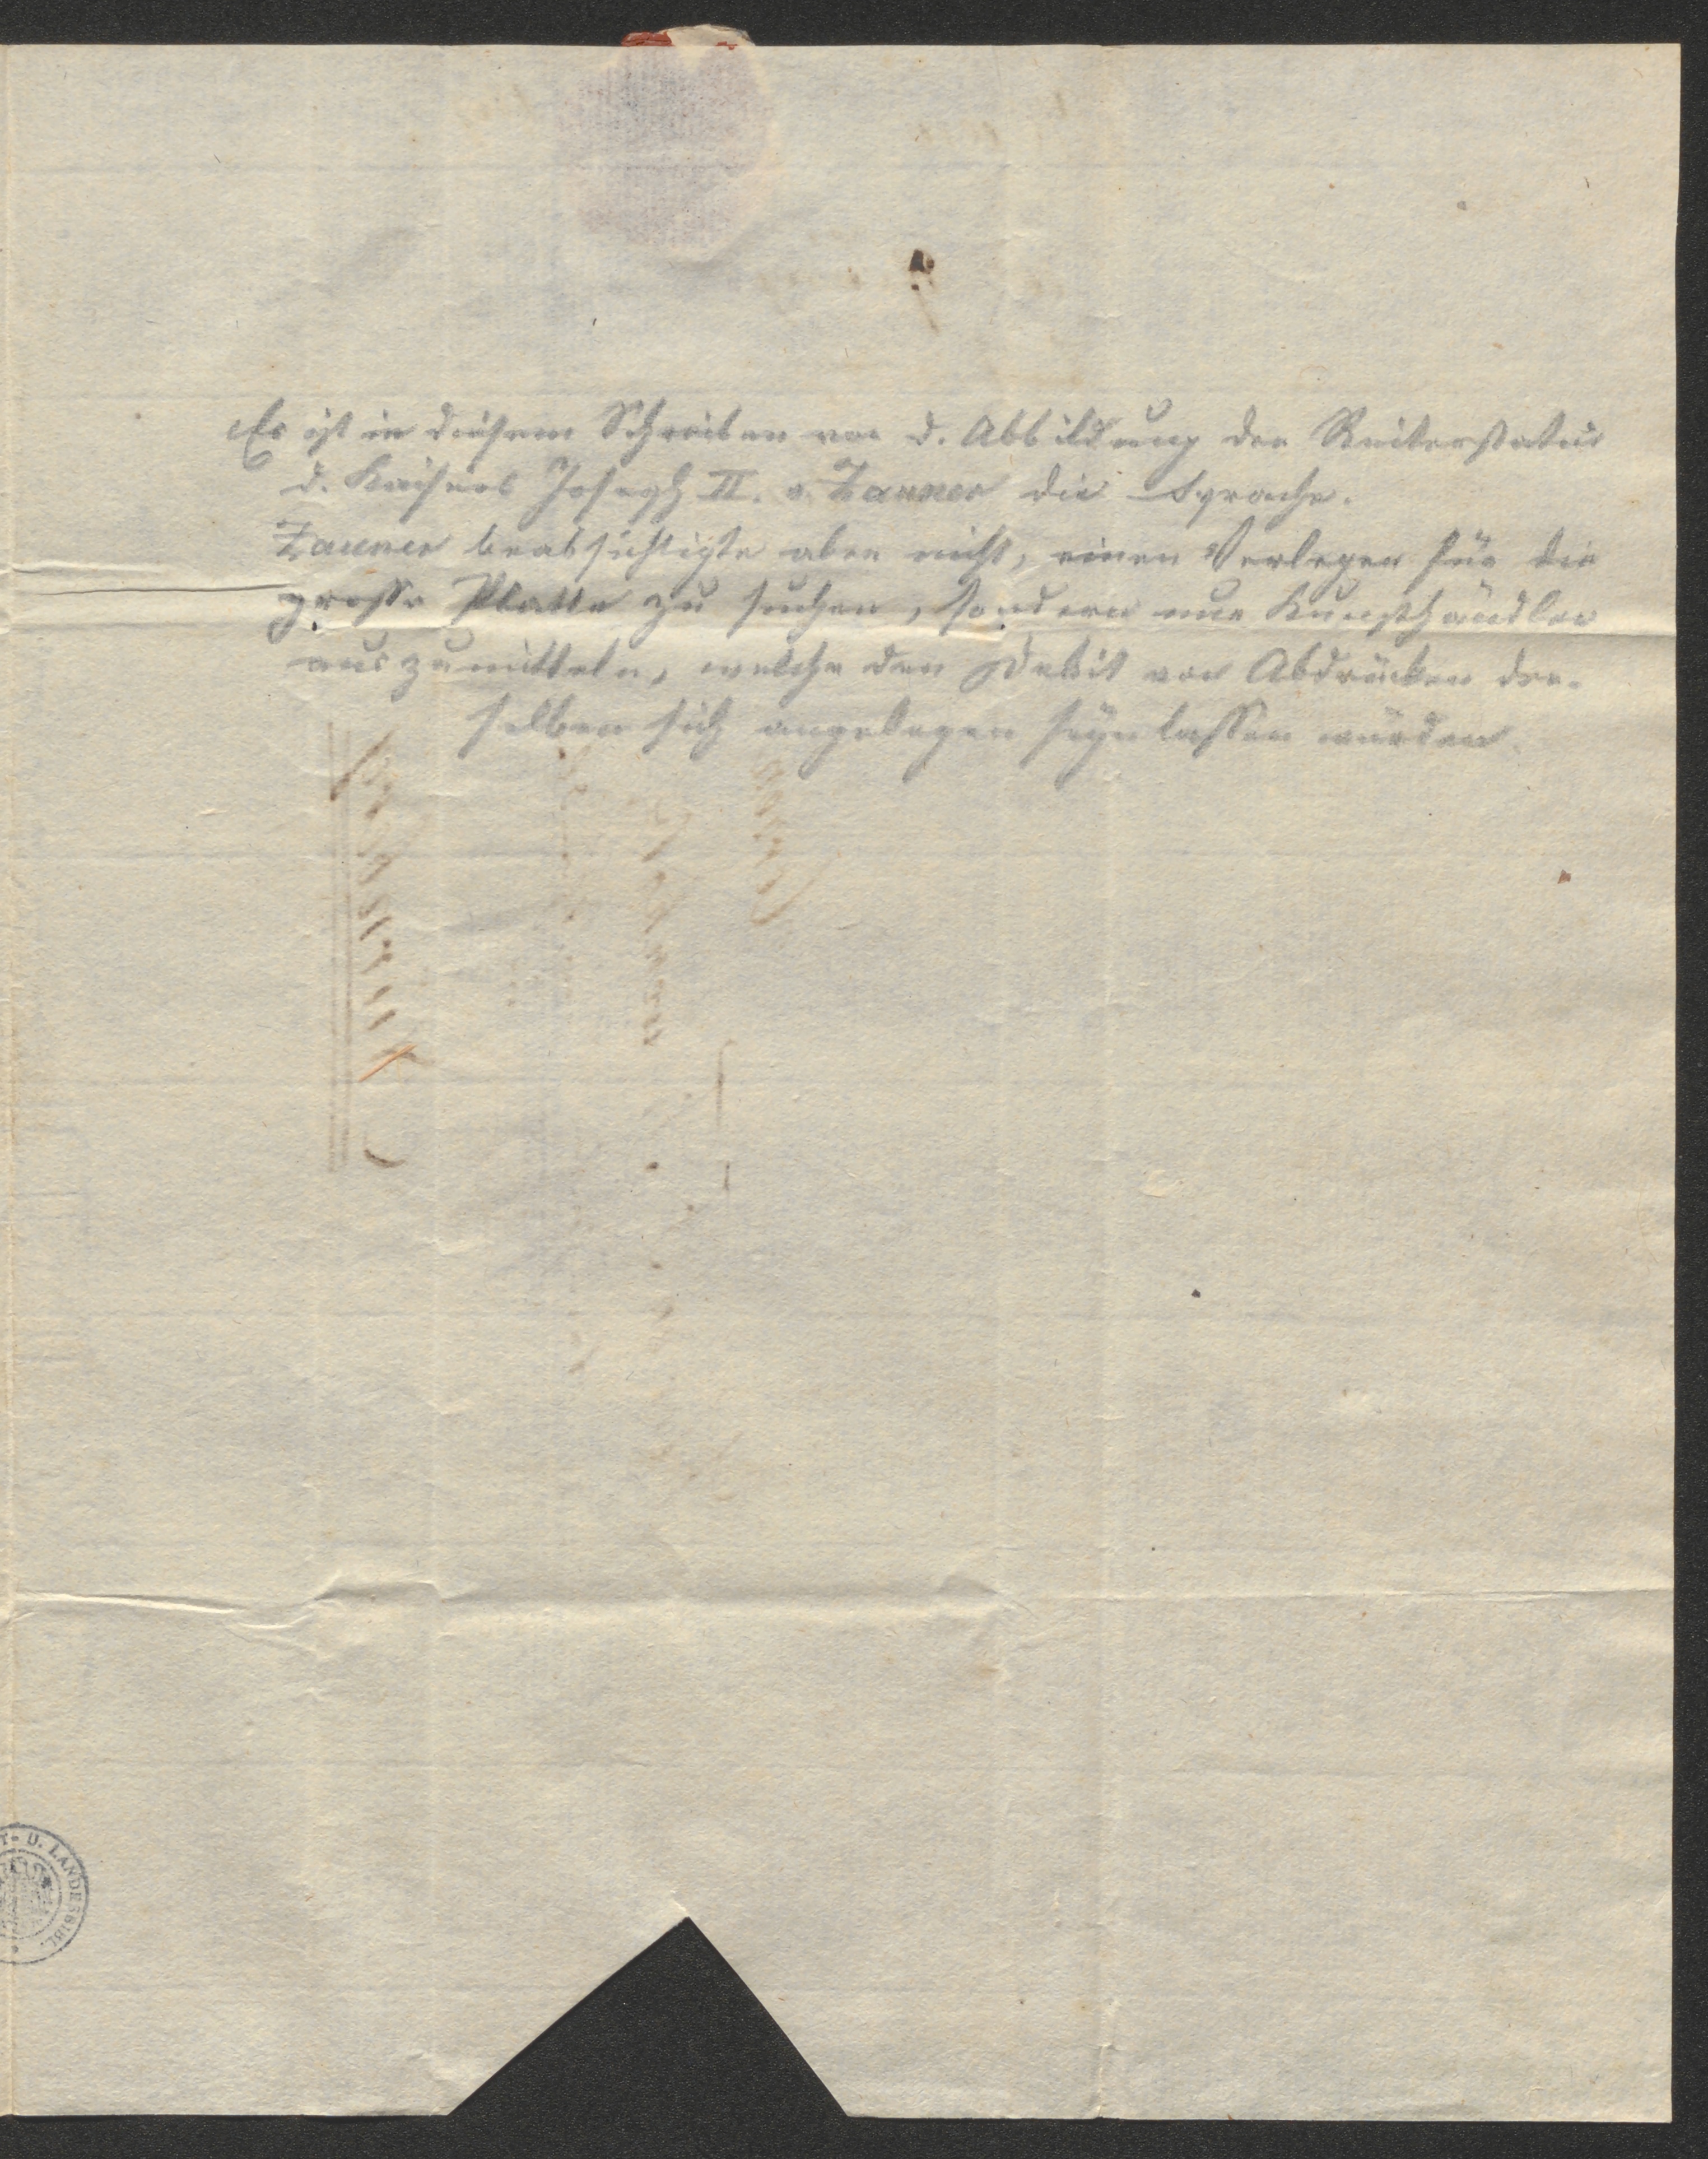 Es ist in diesem Schreiben von d. Abbildung der Reiterstatue
d. Kaisers Joseph II. v. Zauner die Sprache.
Zauner beabsichtigte aber nicht, einen Verleger für die
grosse Platte zu suchen, sondern nur Kunsthändler
auszumitteln, welche den Debit von Abdrücken der-
selben sich angelegen seyn lassen würden.
U. LANDESBIBL.